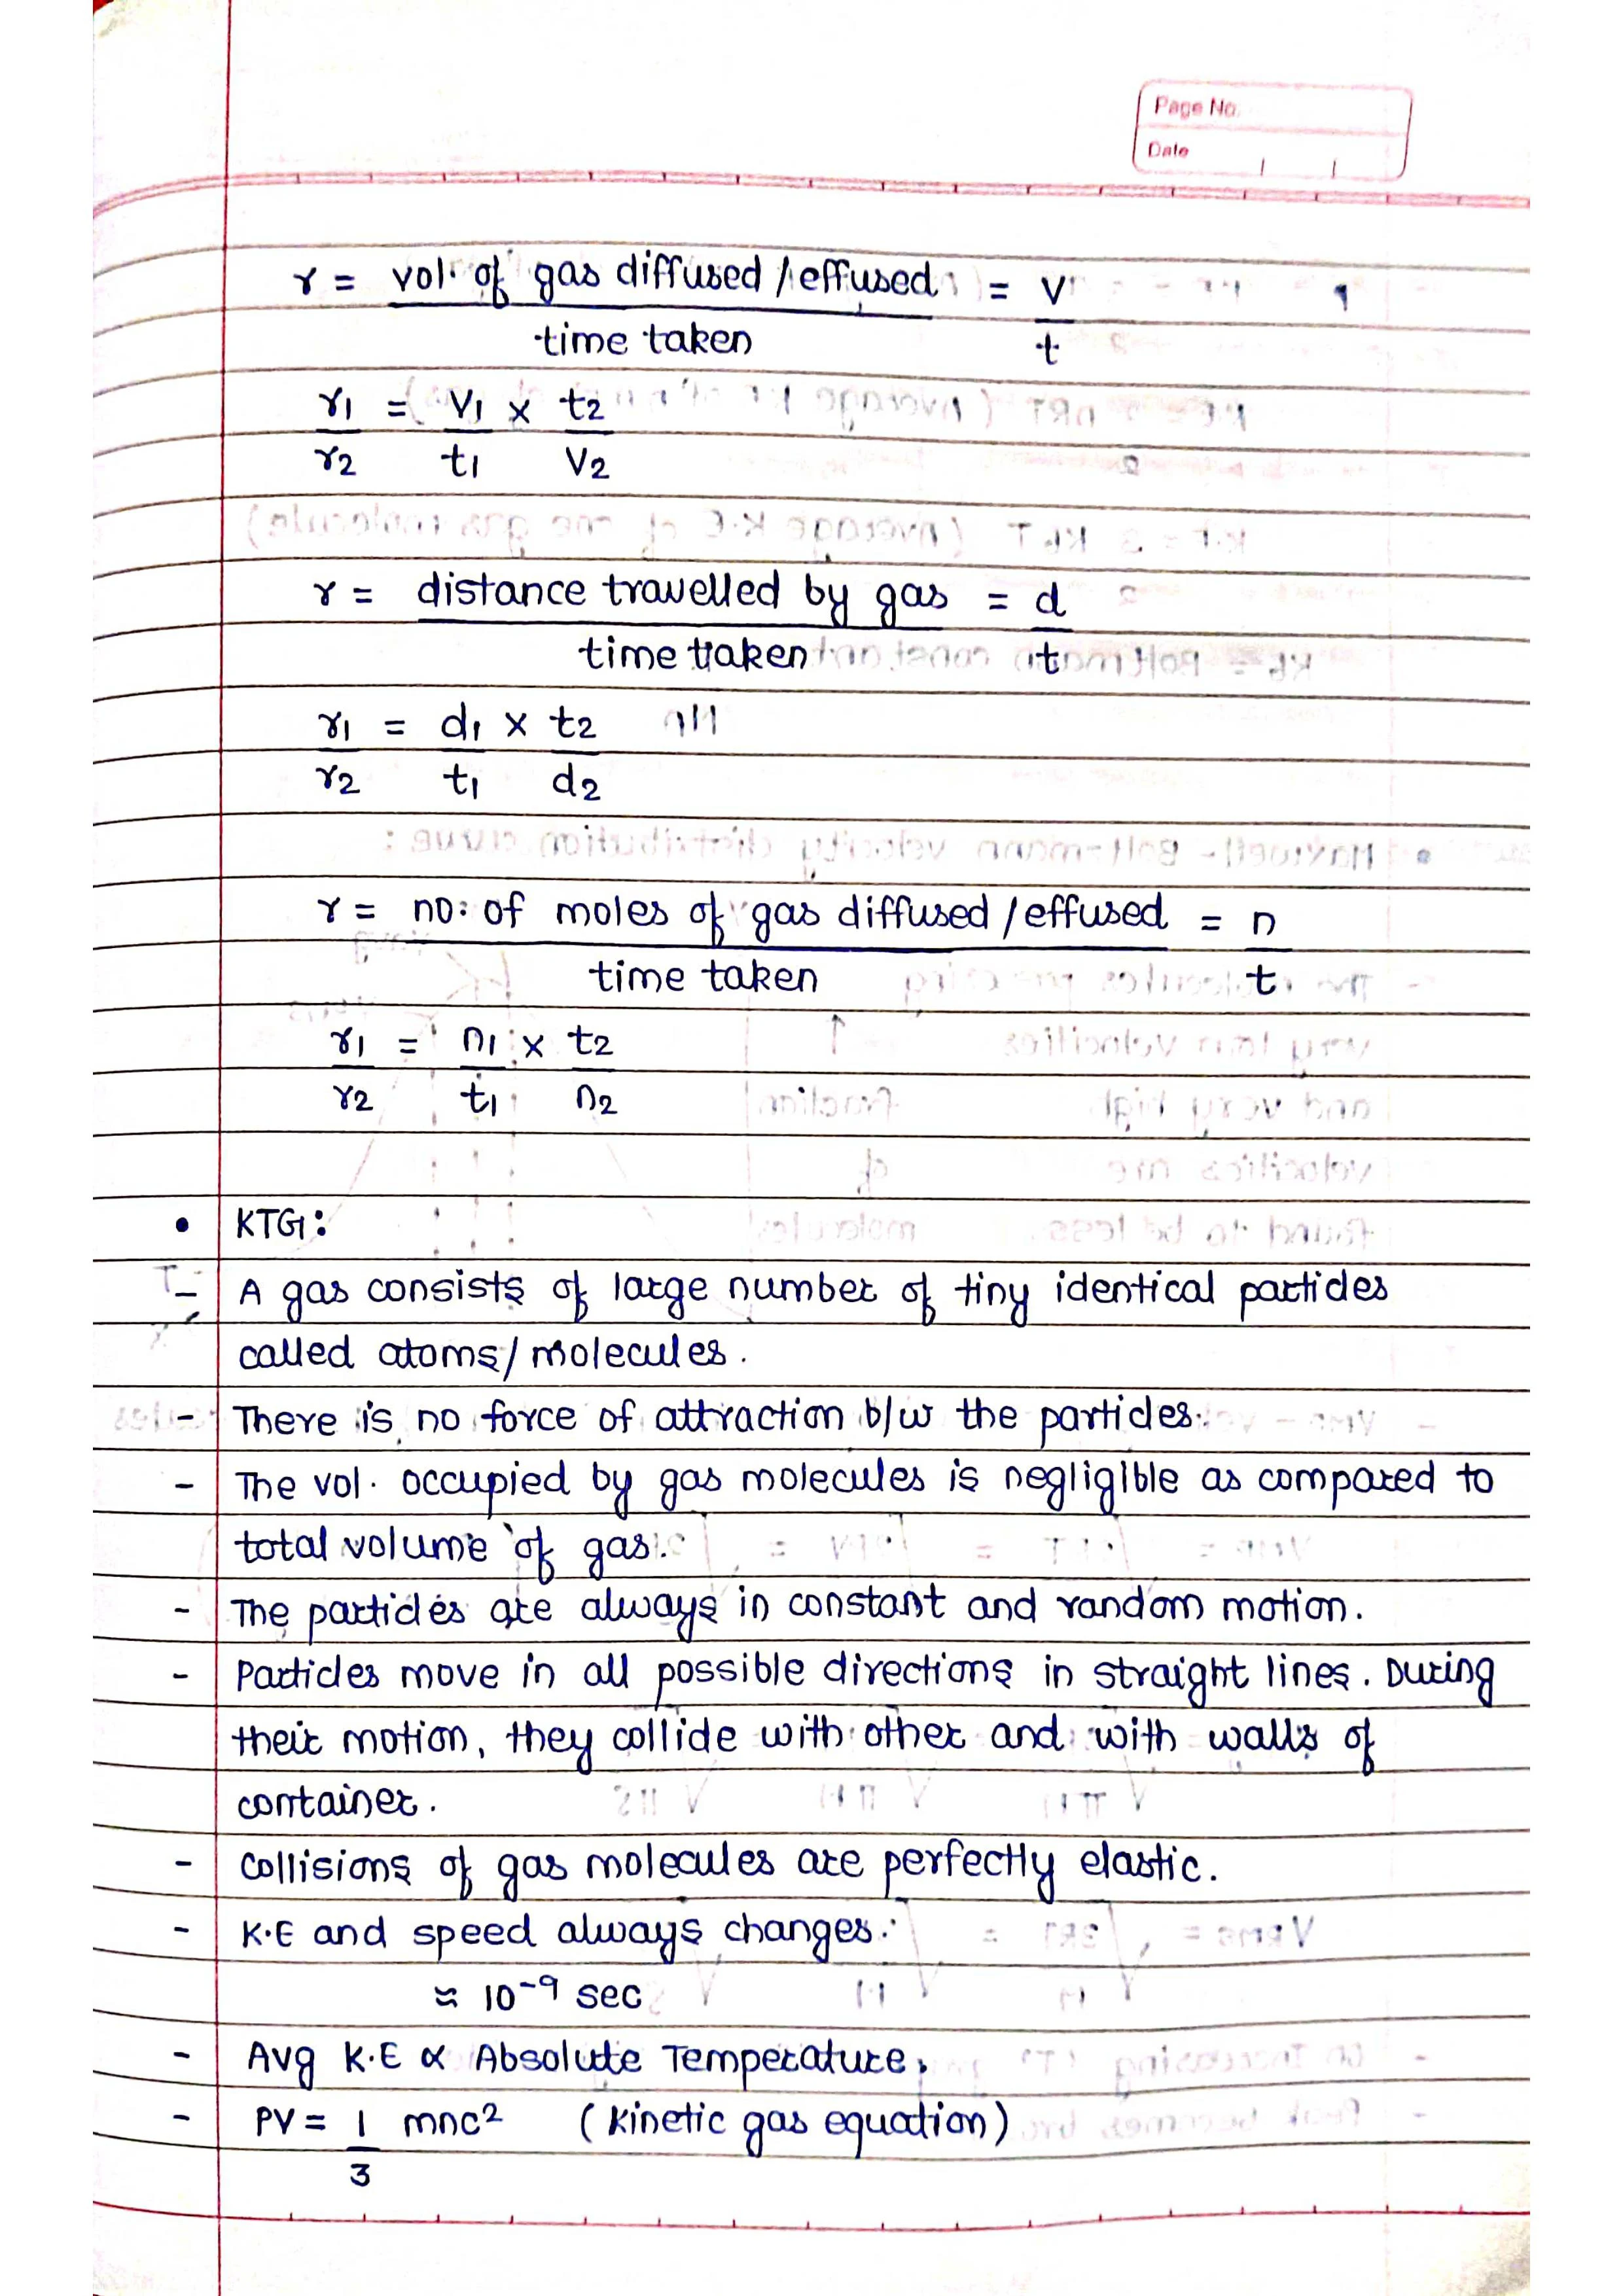 Page No.
Date
r = vol. of gas diffused / effused = V
time taken t
r1 = V1 x t2
r2 t1 V2
r = distance travelled by gas = d
time taken t
r1 = d1 x t2
r2 t1 d2
r = no: of moles of gas diffused / effused = n
time taken t
r1 = n1 x t2
r2 t1 n2
• KTG:
- A gas consists of large number of tiny identical particles
called atoms/molecules.
- There is no force of attraction b/w the particles.
- The vol. occupied by gas molecules is negligible as compared to
total volume of gas.
- The particles are always in constant and random motion.
- Particles move in all possible directions in straight lines. During
their motion, they collide with other and with walls of
container.
- Collisions of gas molecules are perfectly elastic.
- K.E and speed always changes.
≈ 10⁻⁹ sec
- Avg K.E ∝ Absolute Temperature.
- PV = 1 mnc² (Kinetic gas equation)
3